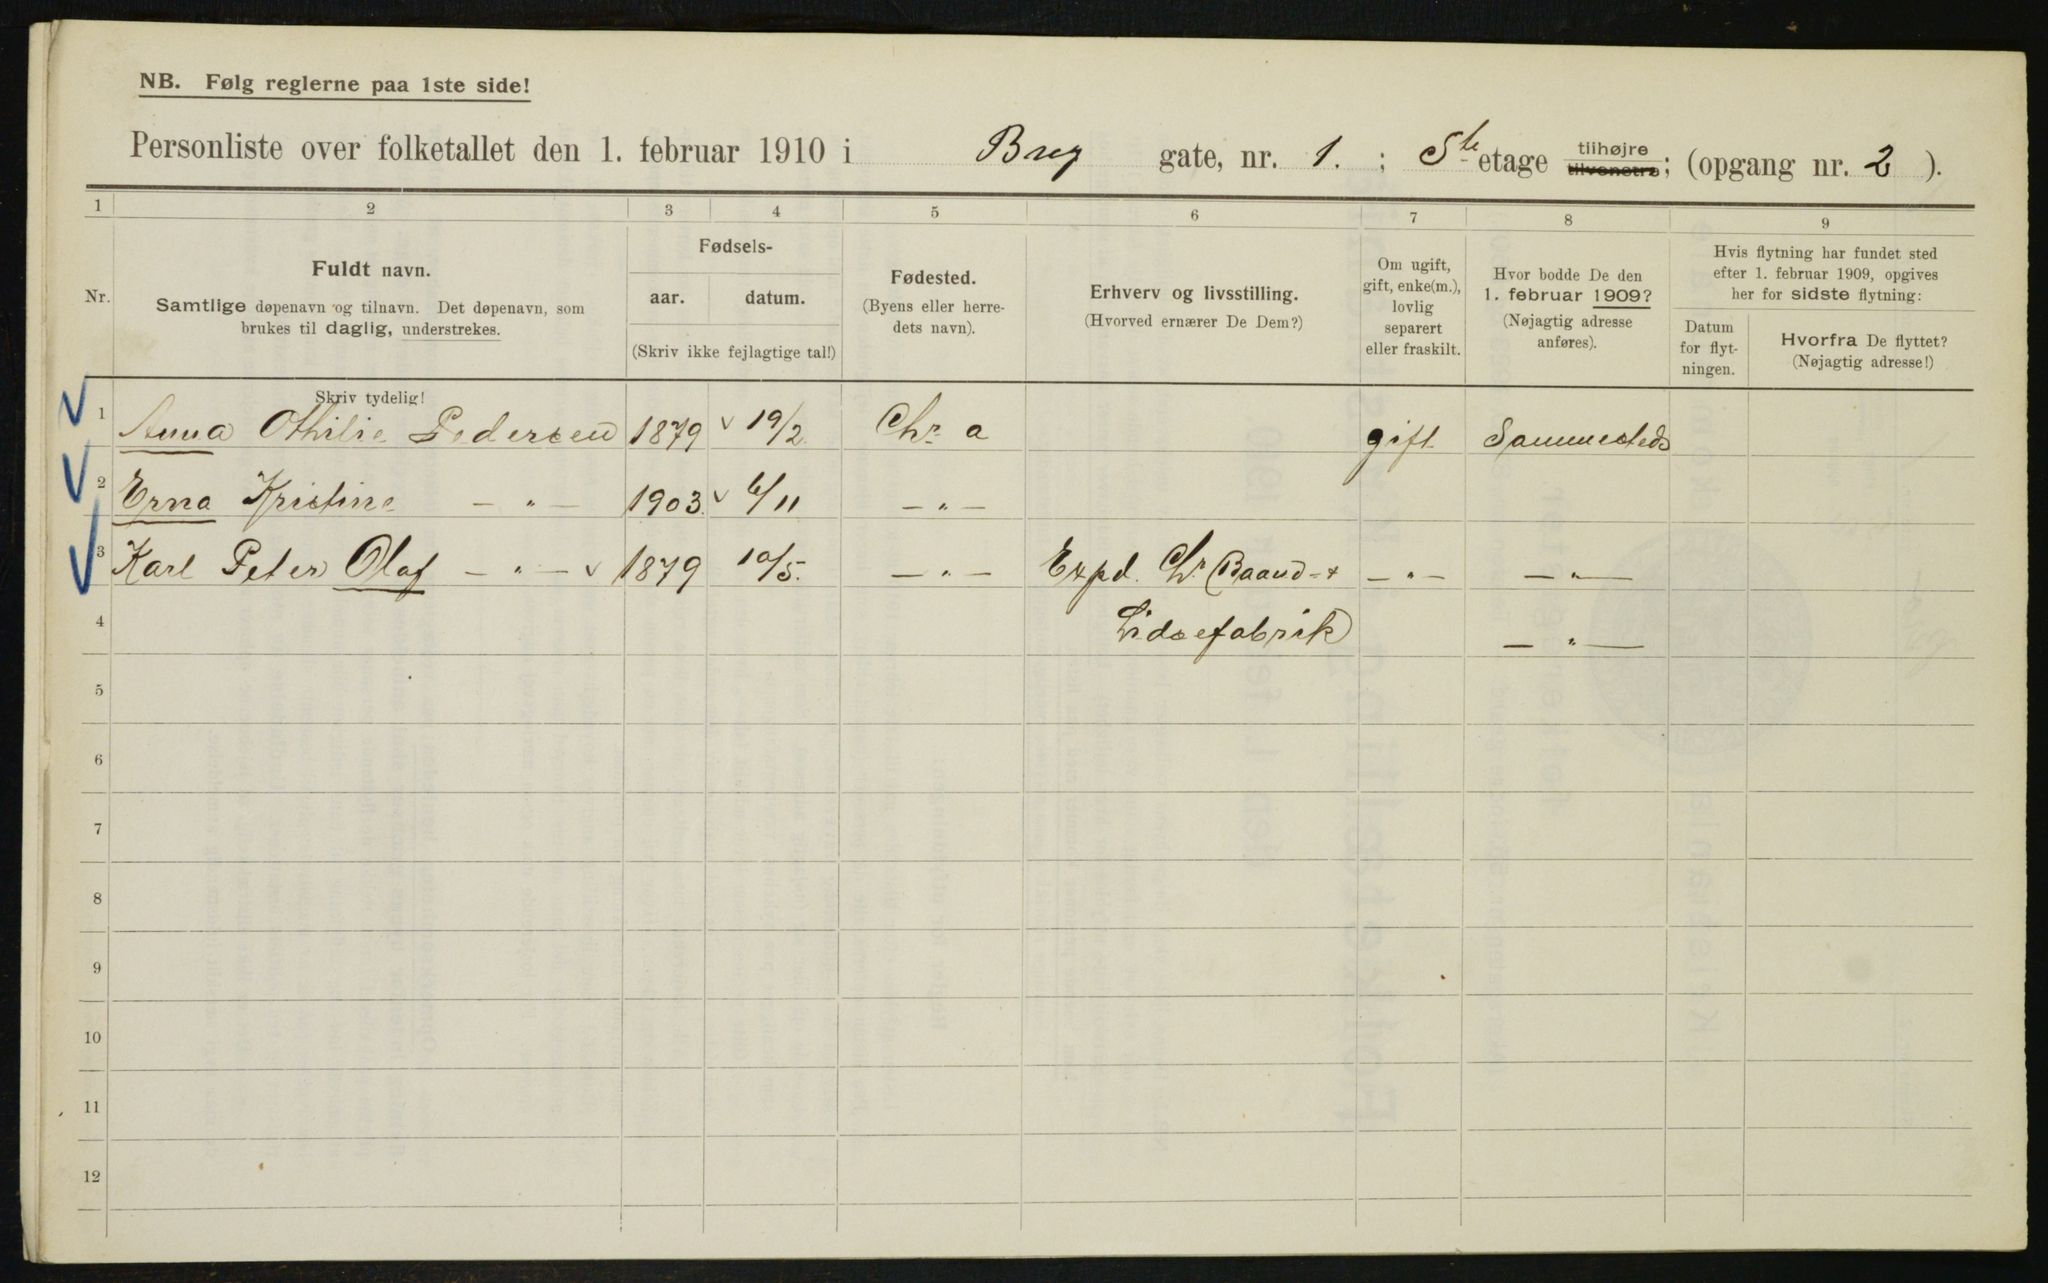 NB. Følg reglerne paa 1ste side!
Personliste over folketallet den 1. februar 1910 i Brug gate, nr. 1. ; 5te etage tilhøjre tilvenstre; (opgang nr. 2 ).
1 2 3 4 5 6 7 8 9
Nr.
Fuldt navn.
Samtlige døpenavn og tilnavn. Det døpenavn, som
brukes til daglig, understrekes.
Fødsels-
aar. datum.
(Skriv ikke fejlagtige tal!)
Fødested.
(Byens eller herre-
dets navn).
Erhverv og livsstilling.
(Hvorved ernærer De Dem?)
Om ugift,
gift, enke(m.),
lovlig
separert
eller fraskilt.
Hvor bodde De den
1. februar 1909?
(Nøjagtig adresse
anføres).
Hvis flytning har fundet sted
efter 1. februar 1909, opgives
her for sidste flytning:
Datum
for flyt-
ningen.
Hvorfra De flyttet?
(Nøjagtig adresse!)
Skriv tydelig!
1 Anna Othilie Pedersen 1879 19/2 Chr. a gift Sammesteds
2 Erna Kristine — " — 1903. 6/11 — " —
3 Karl Peter Olaf — " — 1879 10/5. — " — Expd. Chr Baand- + — " — — " —
4 Lidsefabrik — " —
5
6
7
8
9
10
11
12